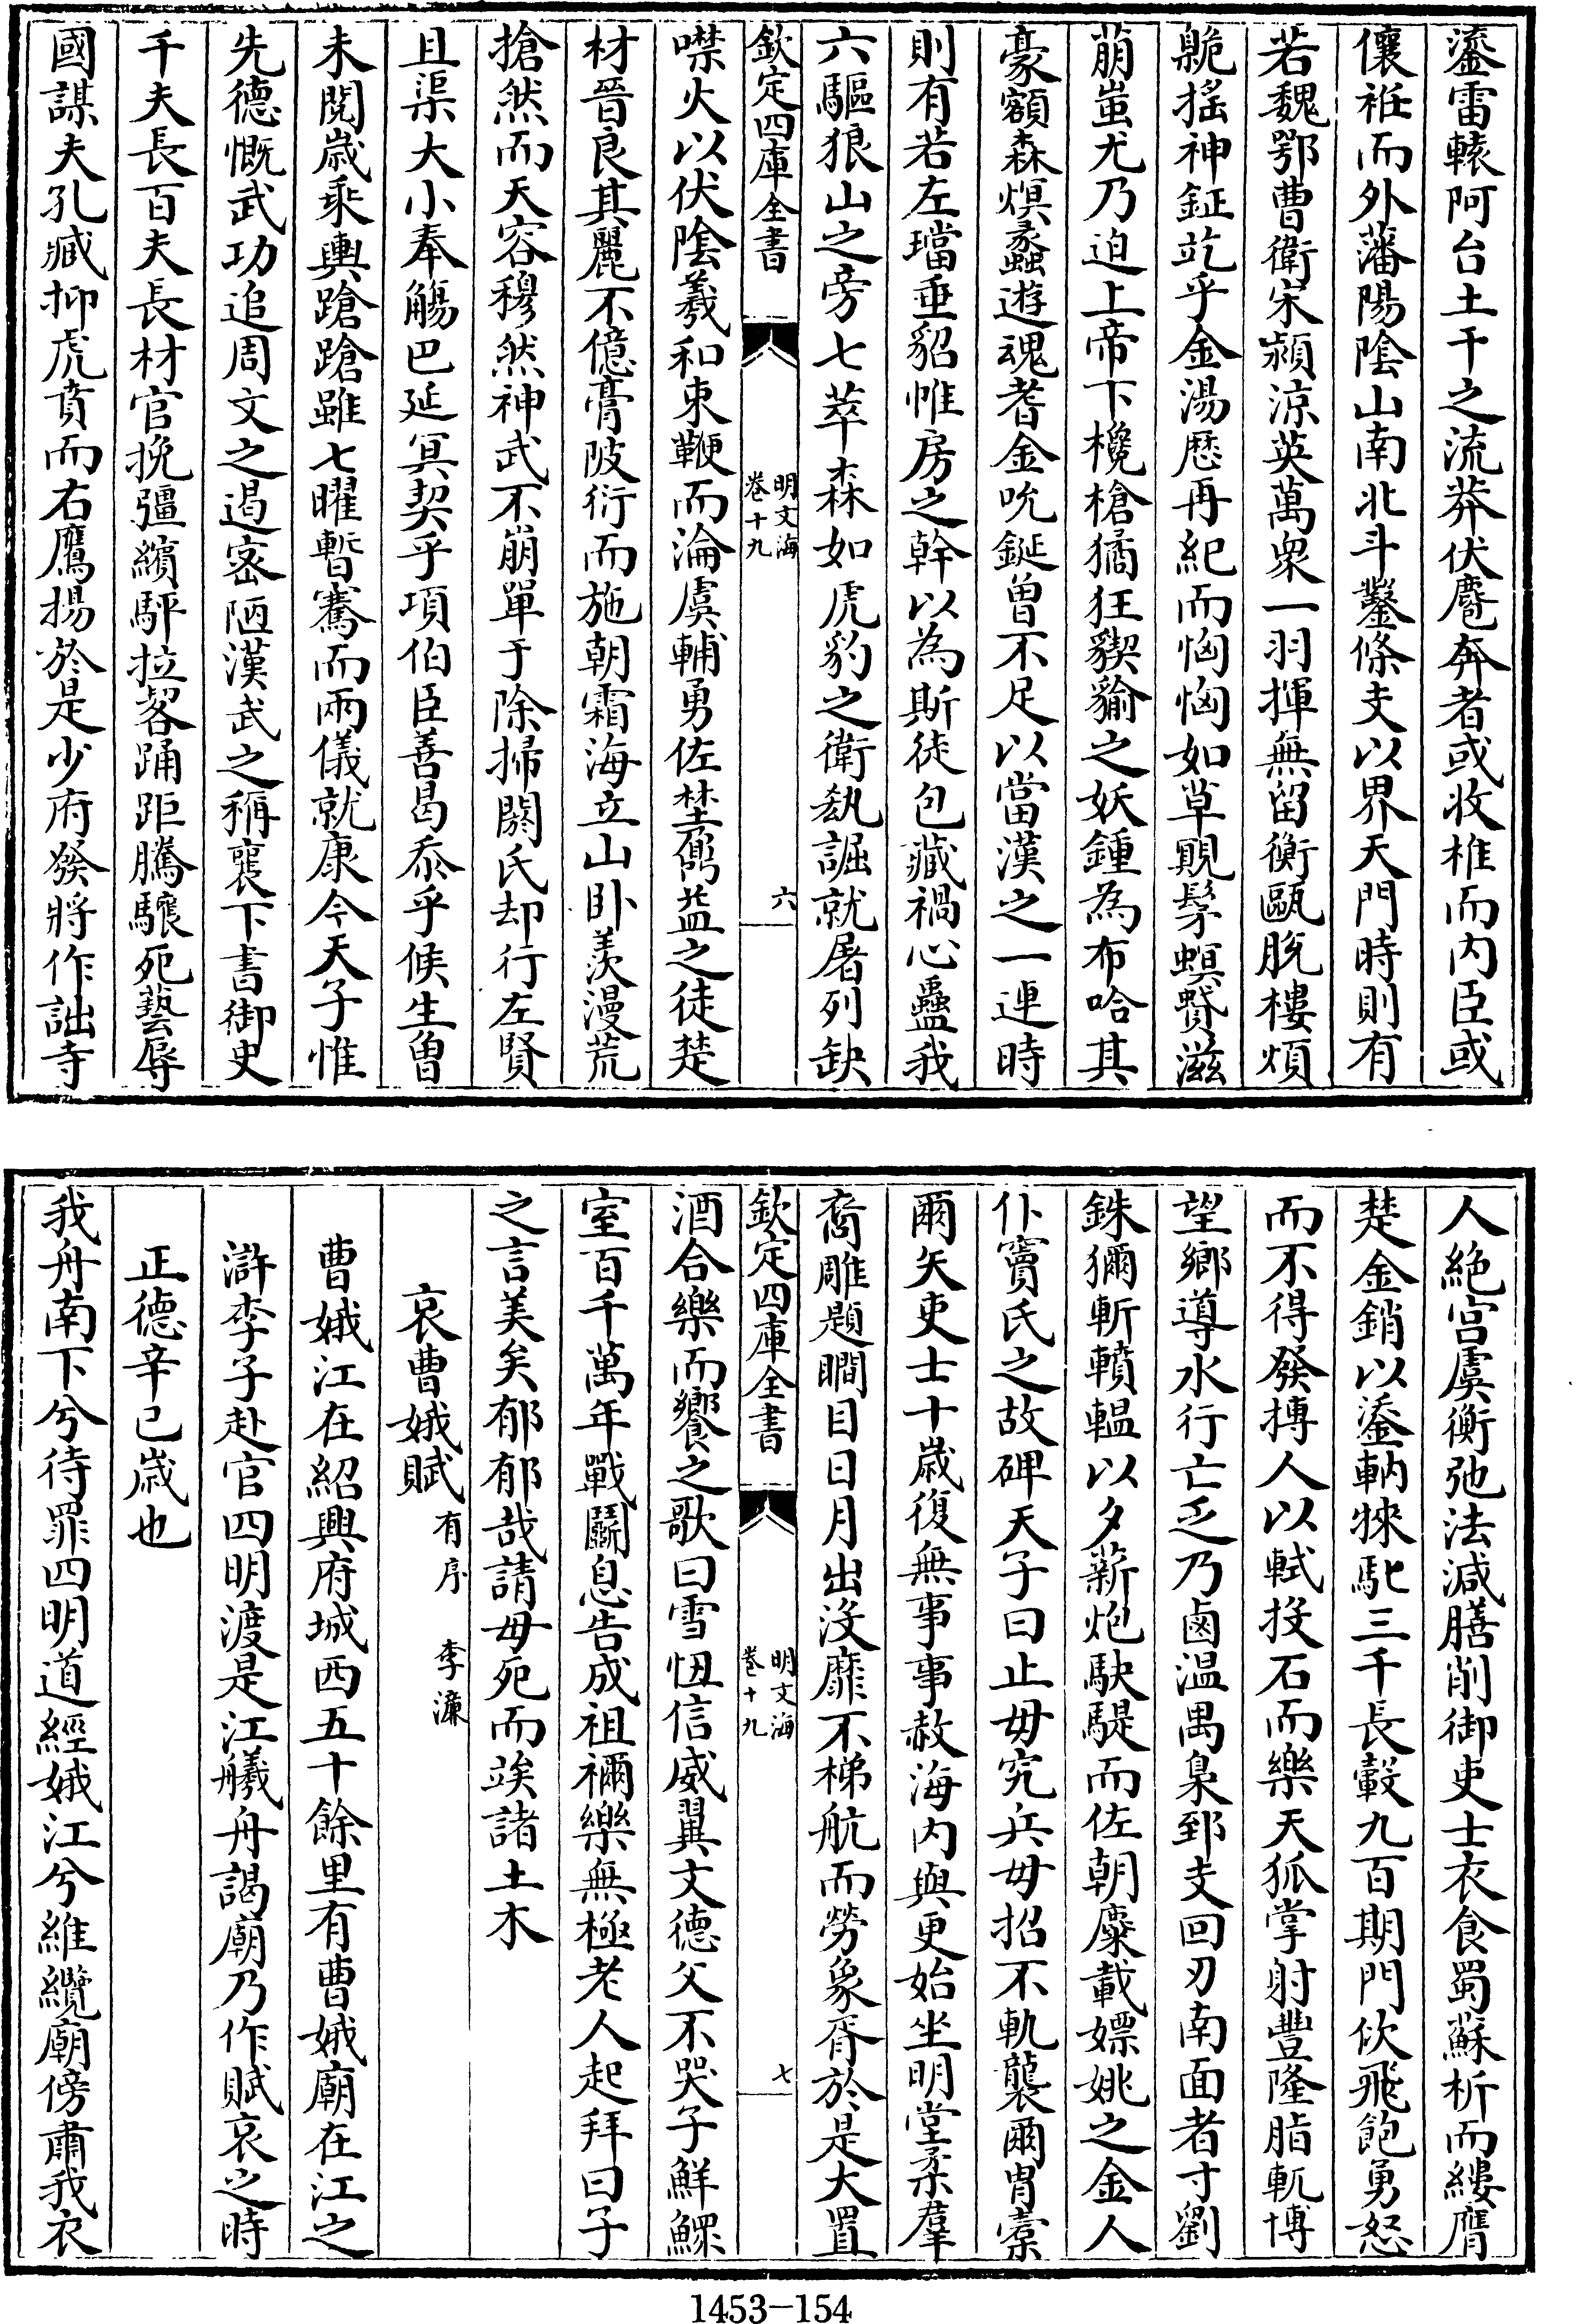 鎏雷轅阿台土干之流莽伏麅奔者或收椎而内臣或
儴袵而外藩陽陰山南北斗鑿條支以界天門時則有
若魏鄂曹衛宋潁涼英萬衆一羽揮無留衡甌脱樓煩
亁揺神鉦竑乎金湯歴再紀而恟恟如草覯髳螟贇滋
萠蚩尤乃迫上帝下欃槍猾狂貏貐之妖鍾為布哈其
豪額森熐蠡遊魂者金吮鋋曽不足以當漢之一連時
則有若左璫垂貂帷房之幹以為斯徒包藏禍心蠱我
六驅狼山之旁七萃森如虎豹之衛埶詘就屠列缺
欽定四庫全書
明文海
卷十九
六
噤火以伏陰羲和束鞭而淪虞輔勇佐埜鬵益之徒楚
材晉良其麗不億膏陂衍而施朝霜海立山卧羨漫荒
搶然而天容穆然神武不崩單于除掃閼氏却行左賢
且渠大小奉觴巴延冥契乎項伯臣善曷㤗乎候生曽
未閲嵗乘輿蹌蹌雖七曜暫騫而兩儀就康今天子惟
先德慨武功追周文之遏宻陋漢武之稱襃下書御史
千夫長百夫長材官挽彊纊駍拉客踊距騰驤死藝辱
國謀夫孔臧抑虎賁而右鷹揚於是少府發將作詘寺
人絶宫虞衡弛法減膳削御吏士衣食蜀蘇析而縷膺
楚金銷以鎏軜㹸馳三千長轂九百期門佽飛飽勇怒
而不得發摶人以軾投石而樂天狐掌射豐隆脂軏愽
望鄉導水行亡乏乃鹵温禺梟郅支回刃南面者寸劉
銖獮斬轒轀以夕薪炮駃騠而佐朝麋載嫖姚之金人
仆竇氏之故碑天子曰止毋究兵毋招不軌襲爾冑橐
爾矢吏士十歳復無事事赦海内與更始坐明堂柔羣
裔雕題瞯目日月出沒靡不梯航而勞象胥於是大置
欽定四庫全書
明文海
卷十九
七
酒合樂而饗之歌曰雪忸信威翼文德父不哭子鮮鰥
室百千萬年戰鬬息告成祖禰樂無極老人起拜曰子
之言美矣郁郁哉請毋死而竢諸土木
哀曹娥賦有序 李濂
曹娥江在紹興府城西五十餘里有曹娥廟在江之
滸李子赴官四明渡是江艤舟謁廟乃作賦哀之時
正德辛巳歳也
我舟南下兮待罪四明道經娥江兮維纜廟傍肅我衣
1453-154